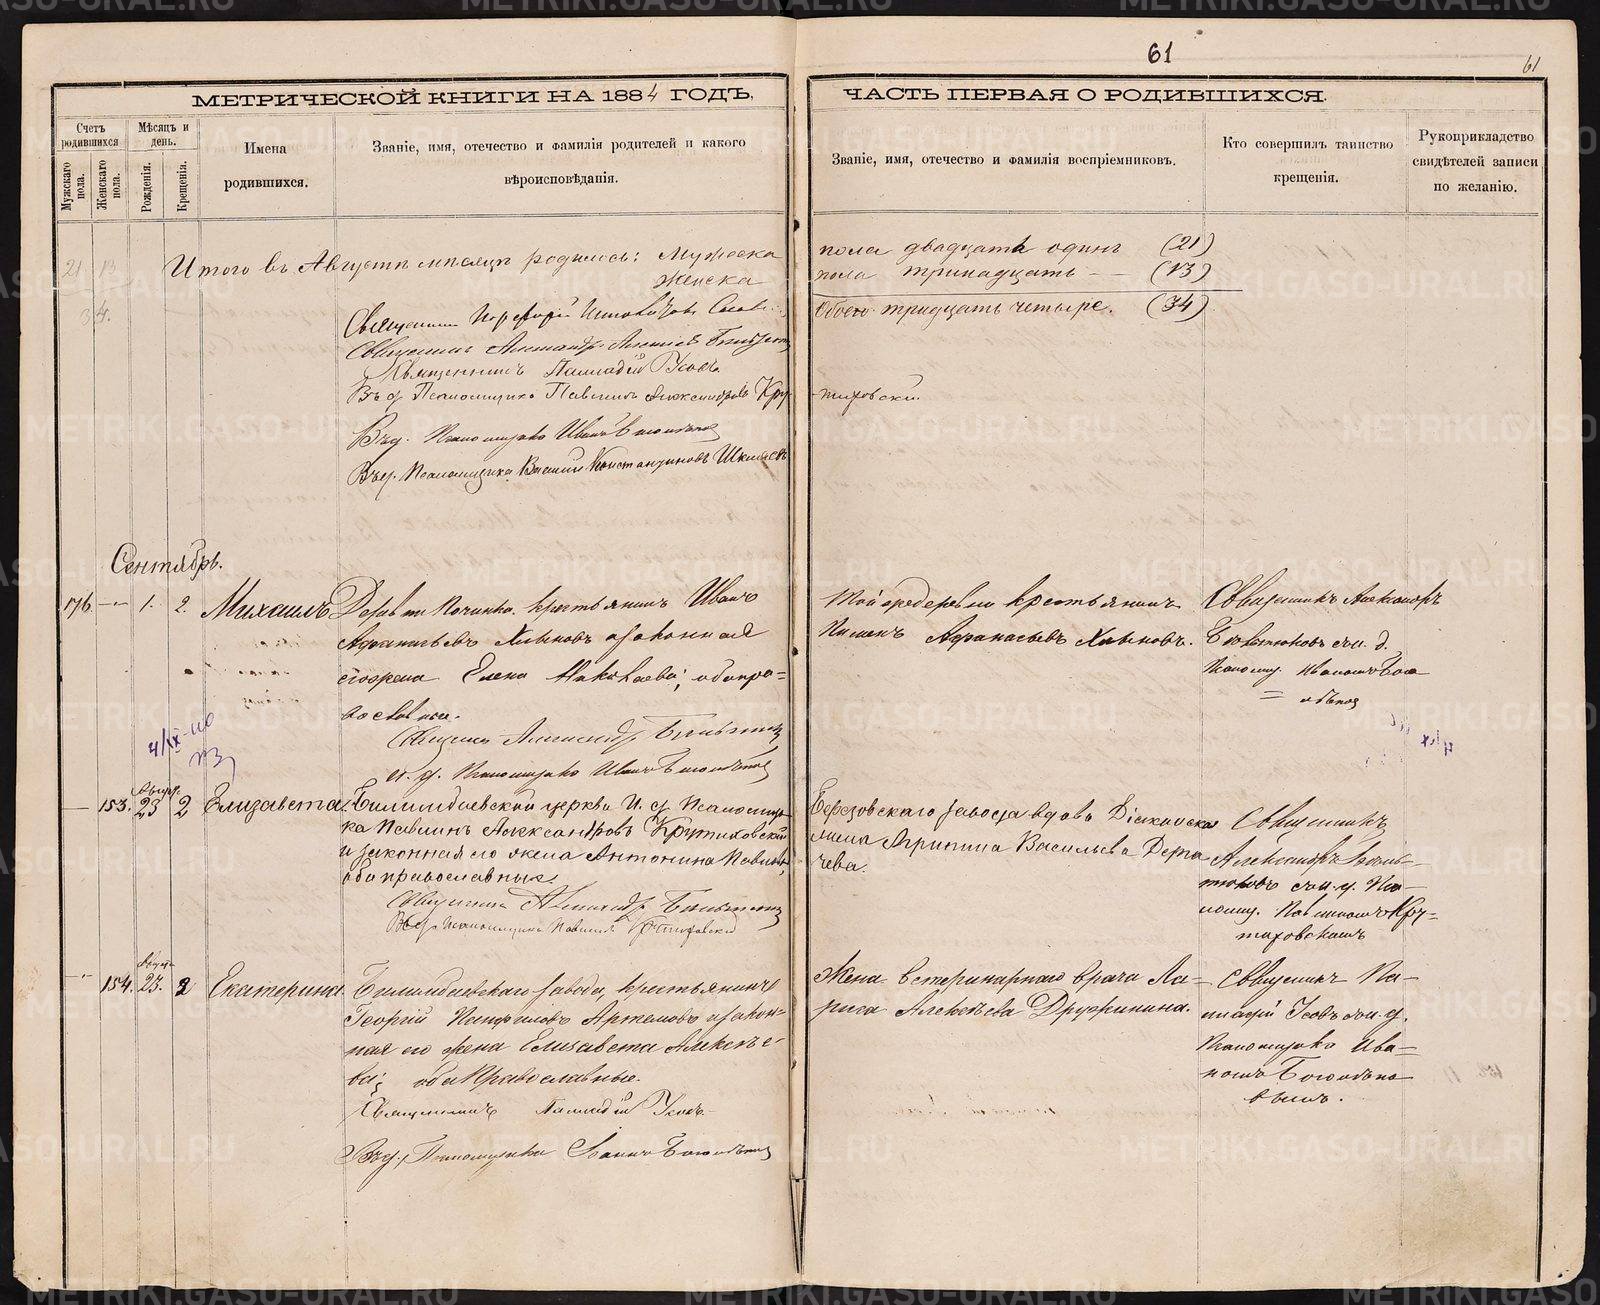 61
61
МЕТРИЧЕСКОЙ КНИГИ НА 1884 ГОДЪ,
ЧАСТЬ ПЕРВАЯ О РОДИВШИХСЯ.
Счетъ родившихся
Мужскаго пола.
Женскаго пола.
Мѣсяцъ и день.
Рожденія.
Крещенія.
Имена
родившихся.
Званіе, имя, отечество и фамилія родителей и какого
вѣроисповѣданія.
Званіе, имя, отечество и фамилія воспріемниковъ.
Кто совершилъ таинство
крещенія.
Рукоприкладство
свидѣтелей записи
по желанію.
21 13
34.
Итого въ Августѣ мѣсяцѣ родилось: Мужеска
пола двадцать одинъ (21)
Женска
пола тринадцать — (13)
Обоего тридцать четыре. (34)
Священникъ
Священникъ Александръ
Священникъ Палладій Усовъ.
Псаломщика Павлинъ Александровъ Кру-
тиховскій.
Псаломщика Иванъ
Псаломщика Василій Константиновъ
Сентябрь.
176. — 1. 2. Михаилъ
Деревни Починка крестьянинъ Иванъ
Афанасьевъ Хлыновъ и законная
его жена Елена Николаева; оба пра=
вославные.
Священникъ Александръ
и. д. Псаломщика Иванъ
Той же деревни крестьянинъ
Пименъ Афанасьевъ Хлыновъ.
Священникъ Александръ
съ и. д.
Псаломщ. Иваномъ Бого=
4/IX-110
— 153. Август. 23 2 Елизавета.
Билимбаевской церкви И. д. Псаломщи-
ка Павлинъ Александровъ Крутиховскій
и законная его жена Антонина Павлова,
оба православные.
Священникъ Александръ
Псаломщика Павлинъ Крутиховскій
Березовскаго завода вдова Діаконская
жена Агрипина Васильева Дерга
чева.
Священникъ
Александръ
съ и. д. Пса-
ломщ. Павлиномъ Кру=
тиховскимъ
— 154. Августа 23. 2 Екатерина.
Билимбаевскаго завода, крестьянинъ
Георгій Панфиловъ Артемовъ и закон=
ная его жена Елизавета Алексѣе-
ва; оба православные.
Священникъ Палладій Усовъ.
Псаломщика Іоаннъ
Жена ветеринарнаго врача Ла-
риса Алексѣева Дружинина.
Священникъ Па-
лладій Усовъ съ и. д.
Псаломщика Ива=
номъ
вымъ.
METRIKI.GASO-URAL.RU